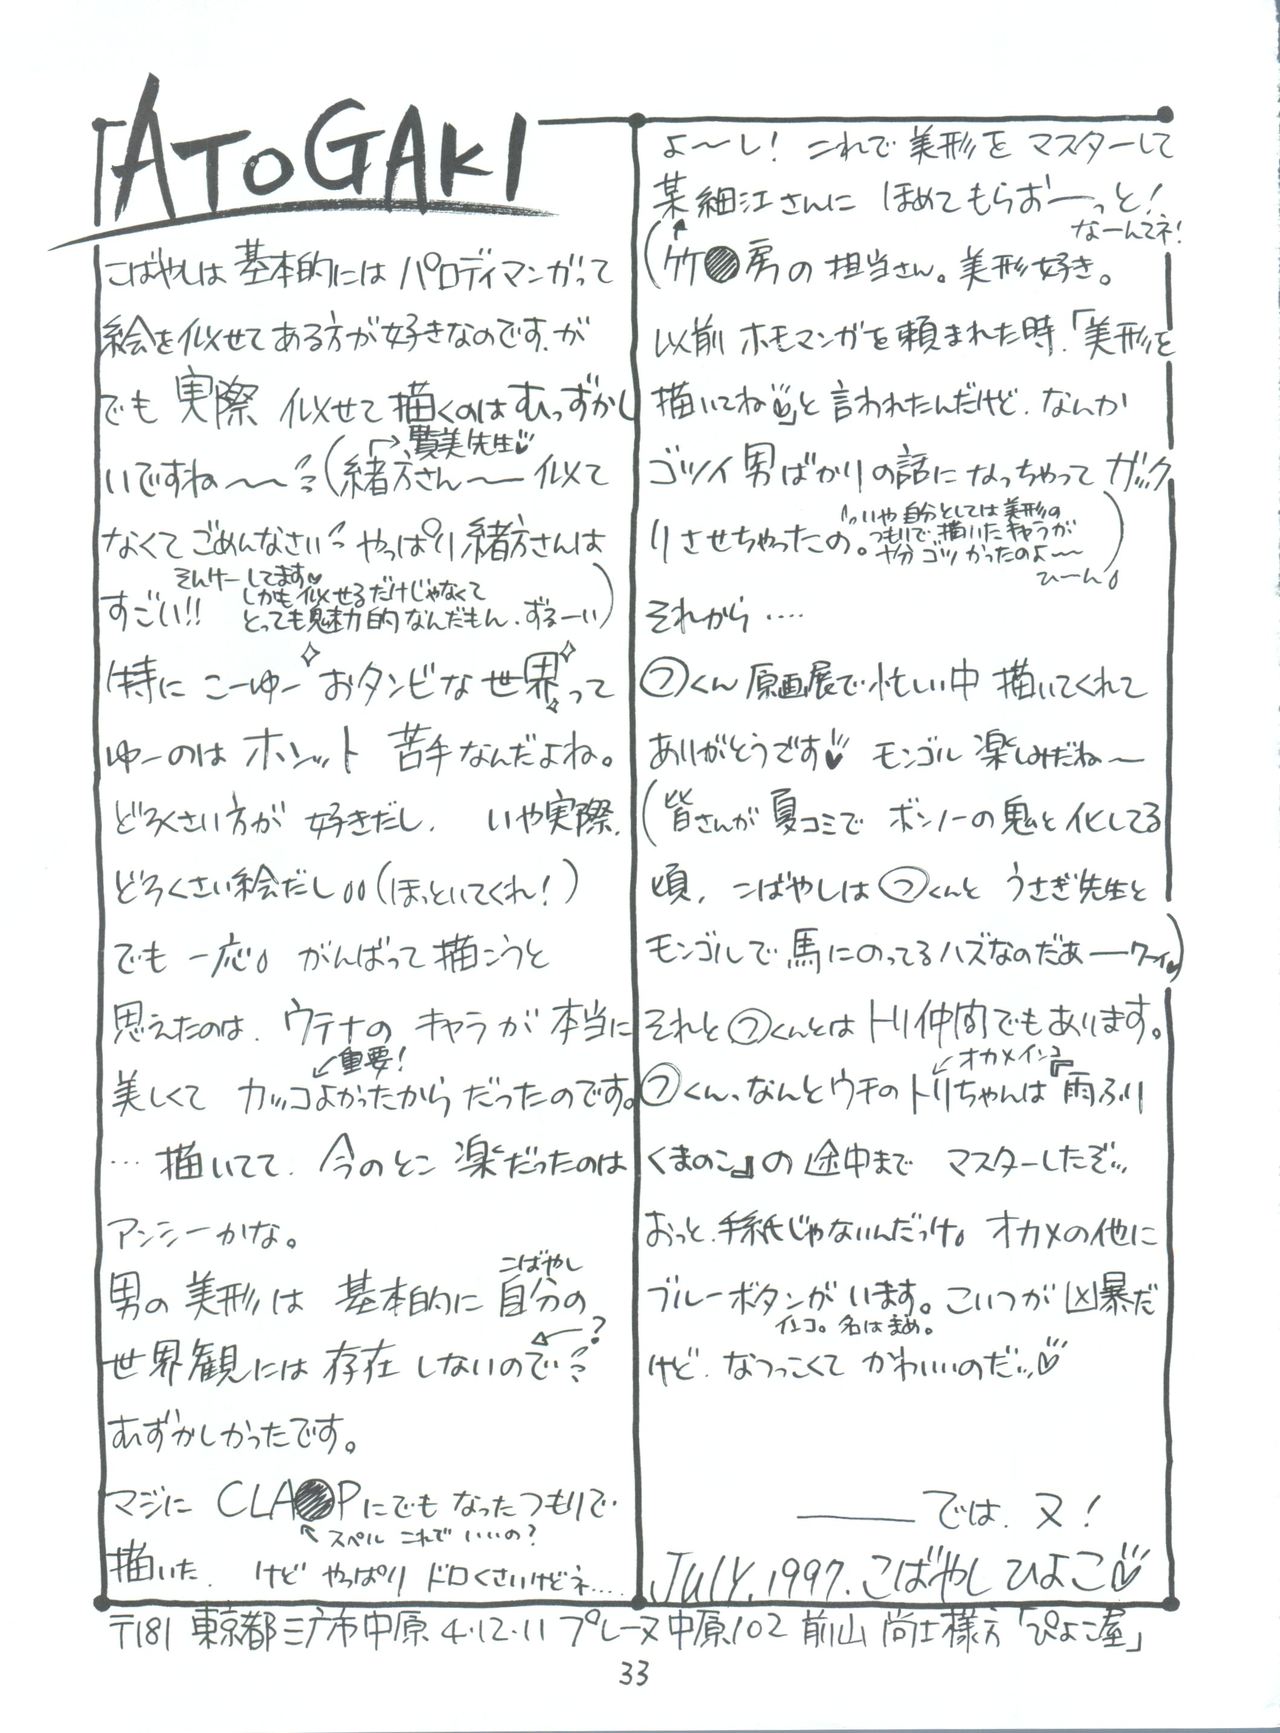 ATOGAKI
こばやしは基本的にはパロディマンガって
絵を似せてある方が好きなのです.が
でも 実際 似せて描くのはむっずかし
いですね〜〜(緒方さん〜〜似て
↱賢美先生♡
なくてごめんなさい やっぱり緒方さんは
すごい!!
そんけーしてます♡
しかも似せるだけじゃなくて
とっても魅力的なんだもん.ずるーい)
特に こーゆー おタンビな世界って
ゆーのは ホンット 苦手なんだよね。
どろくさい方が 好きだし. いや実際.
どろくさい絵だし。。(ほっといてくれ!)
でも 一応。 がんばって描こうと
思えたのは. ウテナの キャラが 本当に
美しくて カッコよかったからだったのです。
↙重要!
…描いてて. 今のとこ 楽だったのは
アンシーかな。
男の美形は 基本的に 自分の
こばやし
世界観には 存在 しないので
←?
むずかしかったです。
マジに CLA●Pにでもなったつもりで.
↖スペル これで いいの?
描いた. けど やっぱり ドロくさいけどネ….
よ〜し! これで美形を マスターして
某細江さんに ほめてもらおーっと!
なーんてネ!
(竹●房の担当さん。美形好き。
以前 ホモマンガを頼まれた時.「美形を
描いてね♡」と 言われたんだけど. なんか
ゴツイ男ばかりの話に なっちゃって ガック
リさせちゃったの。
いや 自分としては 美形の
つもりで 描いたキャラが
やや ゴツかったのよ〜〜
ひーん。)
それから ….
㋫くん 原画展で 忙しい中 描いてくれて
ありがとうです♡ モンゴル 楽しみだね〜
(皆さんが 夏コミで ボンノーの鬼と化してる
頃. こばやしは ㋫くんと うさぎ先生と
モンゴルで 馬にのってるハズなのだあーワーイ♡)
それと ㋫くんとは トリ仲間でもあります。
㋫くん、なんとウチの トリちゃんは『雨ふり
↙オカメインコ
くまのこ』の 途中まで マスターしたぞ…
おっと.手紙じゃないんだっけ。 オカメの他に
ブルーボタンが います。こいつが 凶暴だ
インコ。名は まめ。
けど. なつっこくて かわいいのだ…♡
――では. 又!
JULY.1997.こばやし ひよこ♡
〒181 東京都三鷹市中原 4・12・11 プレーヌ中原102 前山 尚士様方「ぴよこ屋」
33